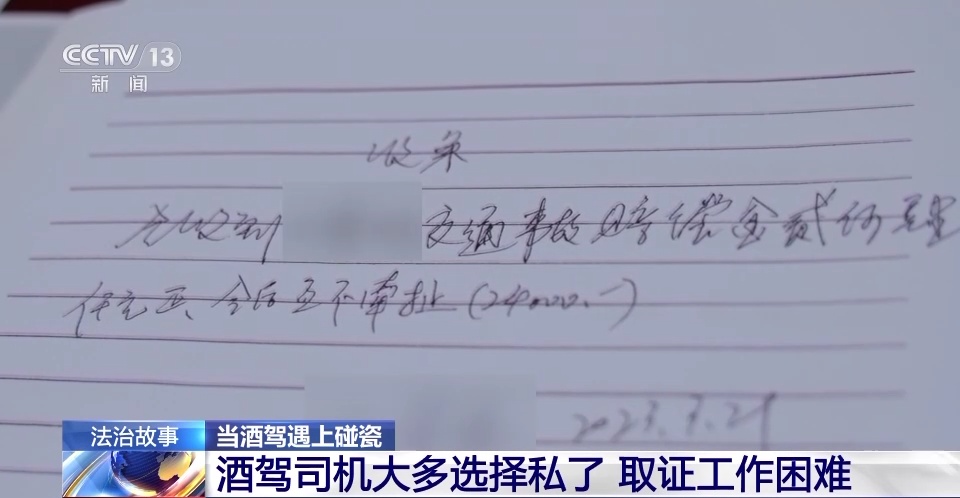 CCTV 13
新闻
收条
今收到 交通事故赔偿金贰万肆
仟元正、今后互不牵扯(24000.-)
2023.3.21
法治故事
当酒驾遇上碰瓷
酒驾司机大多选择私了 取证工作困难